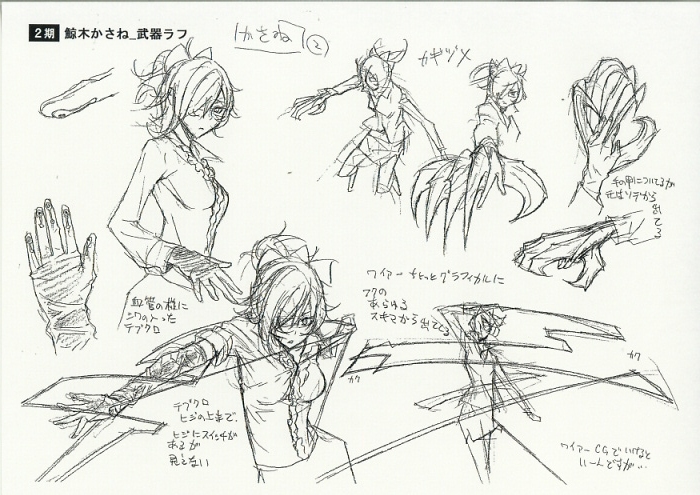 2期 鯨木かさね_武器ラフ
かさね ②
カギヅメ
手の甲についてるが
モチはソデから
出てる
血管の様に
シワの入った
テブクロ
ワイアー ちょっとグラフィカルに
フクの
あらゆる
スキマから出てくる
カク
カク
テブクロ
ヒジの上まで。
ヒジにスイッチが
あるが
見えない
ワイアーCGでいけないと
いーんですが…